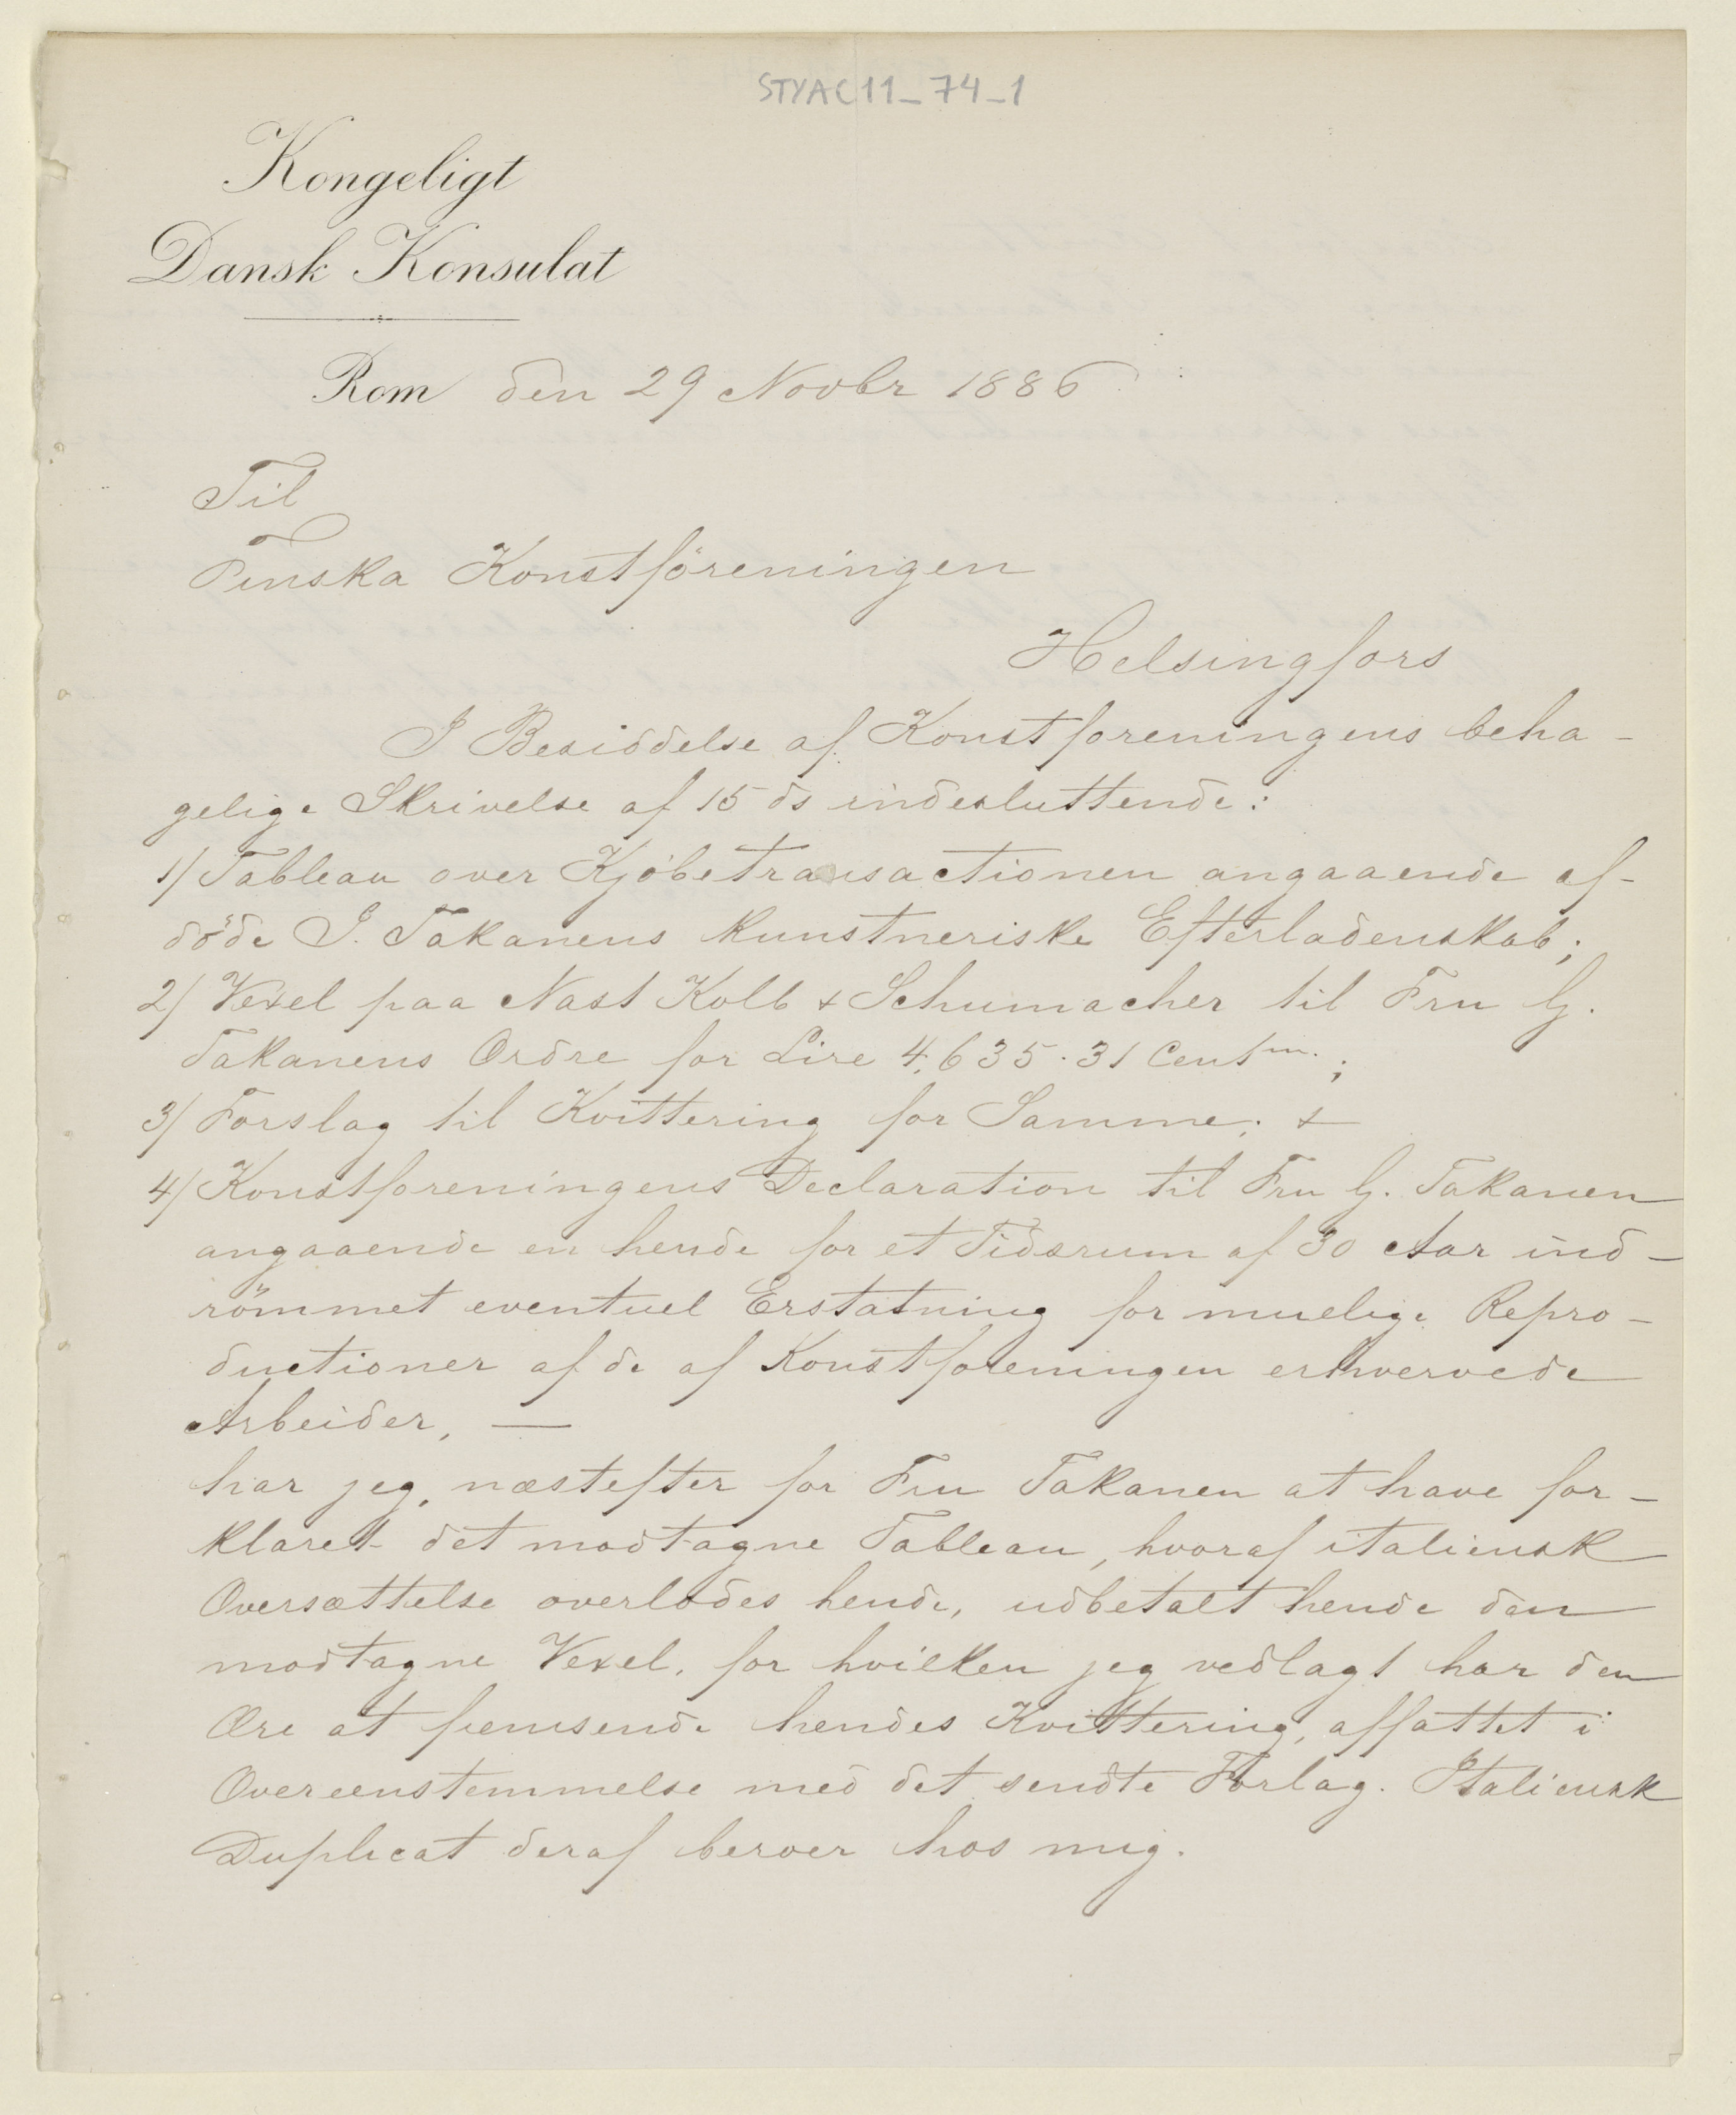 STYAC11_74_1
Kongeligt
Dansk Konsulat
Rom den 29 Novbr 1886
Til
Finska Konstföreningen
Helsingfors
I Besiddelse af Konstforeningens beha-
gelige Skrivelse af 15 ds indesluttende:
1/ Tableau over Kjöbetransactionen angaaende af-
döde J. Takanens kunstneriske Efterladenskab;
2/ Vexel paa Nast Kolb & Schumacher til Fru G.
Takanens Ordre for Lire 4,635.31 Centm.;
3/ Forslag til Kvittering for Samme; &
4/ Konstforeningens Declaration til Fru G. Takanen
angaaende en hende for et Tidsrum af 30 Aar ind-
römmet eventuel Erstatning for muelige Repro-
ductioner af de af Konstforeningen erhvervede
Arbeider, —
har jeg, næstefter for Fru Takanen at have for-
klaret det modtagne Tableau, hvoraf italiensk
Oversættelse overlodes hende, udbetalt hende den
modtagne Vexel, for hvilken jeg vedlagt har den
Ære at fremsende hendes Kvittering, affattet i
Overeenstemmelse med det sendte Forlag. Italiensk
Duplicat deraf beroer hos mig.